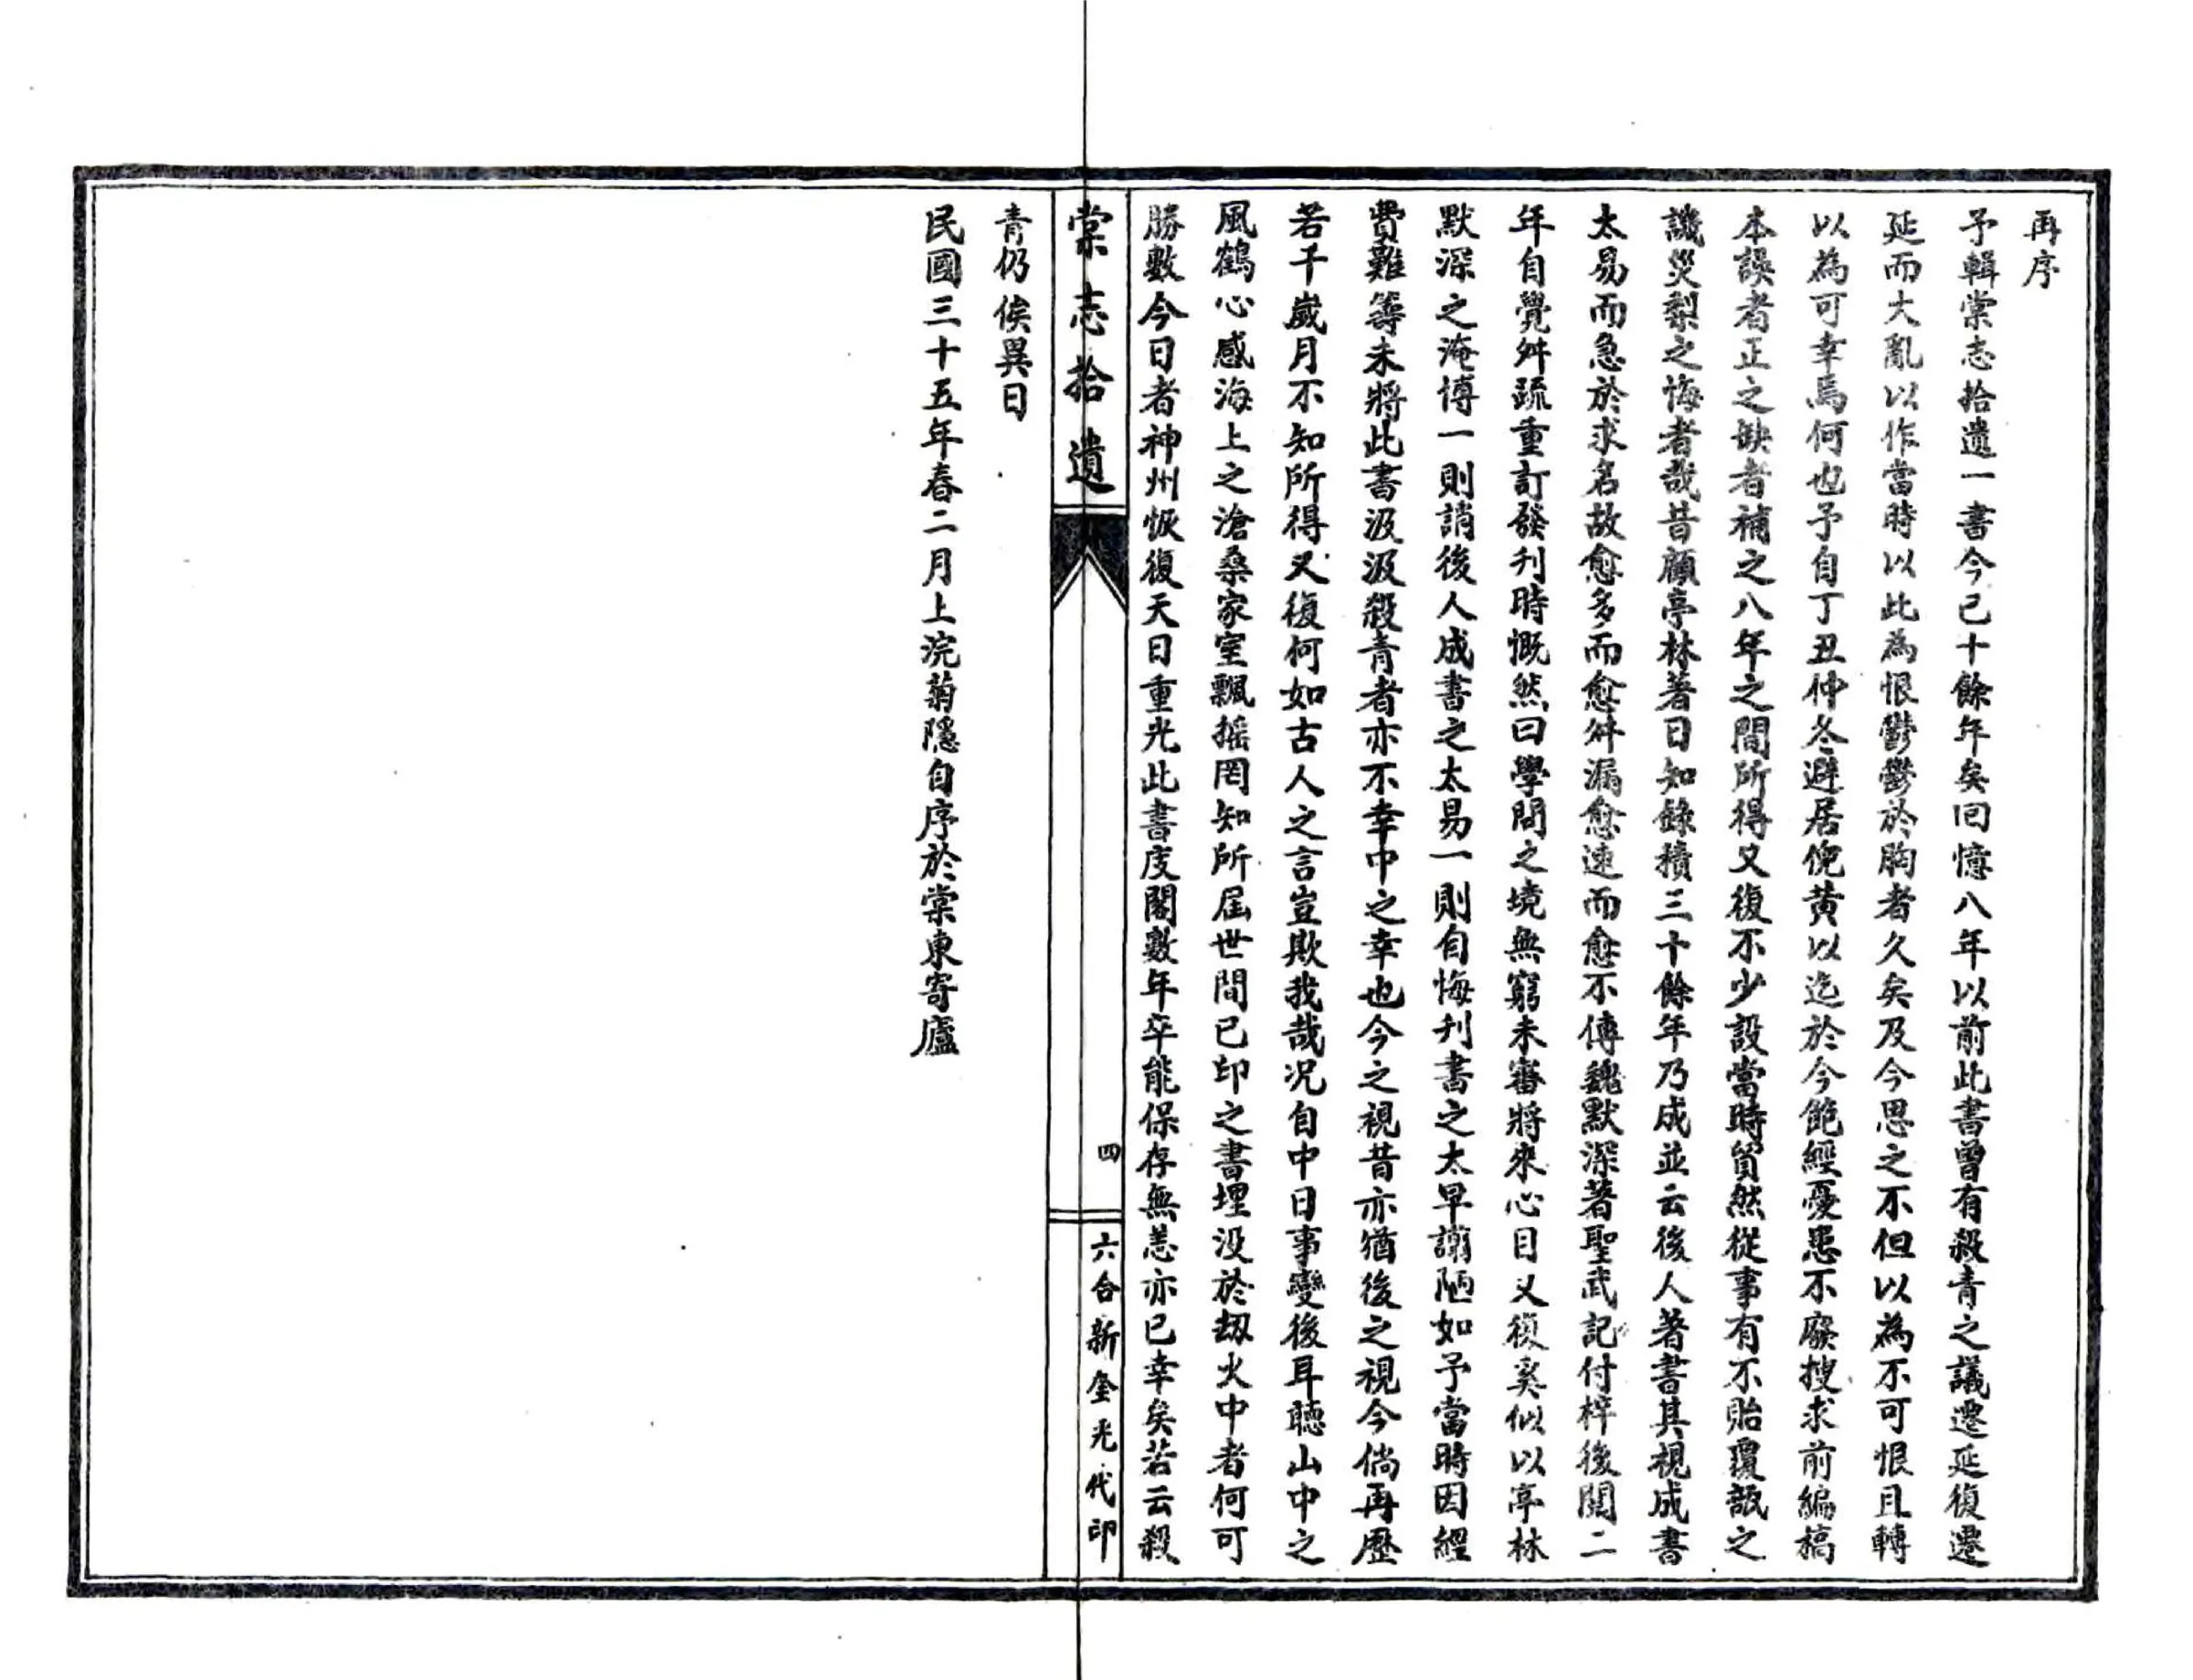 再序
予輯棠志拾遺一書今已十餘年矣回憶八年以前此書曾有殺青之議遷延復遷
延而大亂以作當時以此為恨鬱鬱於胸者久矣及今思之不但以為不可恨且轉
以為可幸焉何也予自丁丑仲冬避居倪黄以迄於今飽經憂患不廢搜求前編稿
本誤者正之缺者補之八年之間所得又復不少設當時貿然從事有不貽覆瓿之
譏災梨之悔者哉昔顧亭林著日知錄積三十餘年乃成並云後人著書其視成書
太易而急於求名故愈多而愈舛漏愈速而愈不傳魏默深著聖武記付梓後閱二
年自覺舛疏重訂發刋時慨然曰學問之境無窮未審將來心目又復奚似以亭林
默深之淹博一則誚後人成書之太易一則自悔刋書之太早謭陋如予當時因經
費難籌未將此書汲汲殺青者亦不幸中之幸也今之視昔亦猶後之視今倘再歷
若干歲月不知所得又復何如古人之言豈欺我哉况自中日事變後耳聽山中之
風鶴心感海上之滄桑家室飄摇罔知所屆世間已印之書埋没於刼火中者何可
勝數今日者神州恢復天日重光此書庋閣數年卒能保存無恙亦已幸矣若云殺
棠志拾遺
四
六合新奎光代印
青仍俟異日
民國三十五年春二月上浣菊隱自序於棠東寄廬